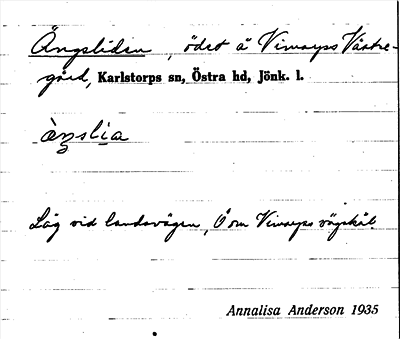 Ängsliden, ödet å Vimarps Västre-
gård, Karlstorps sn, Östra hd, Jönk. l.
Låg vid landsvägen, Ö om Vimarps vägskäl.
Annalisa Anderson 1935